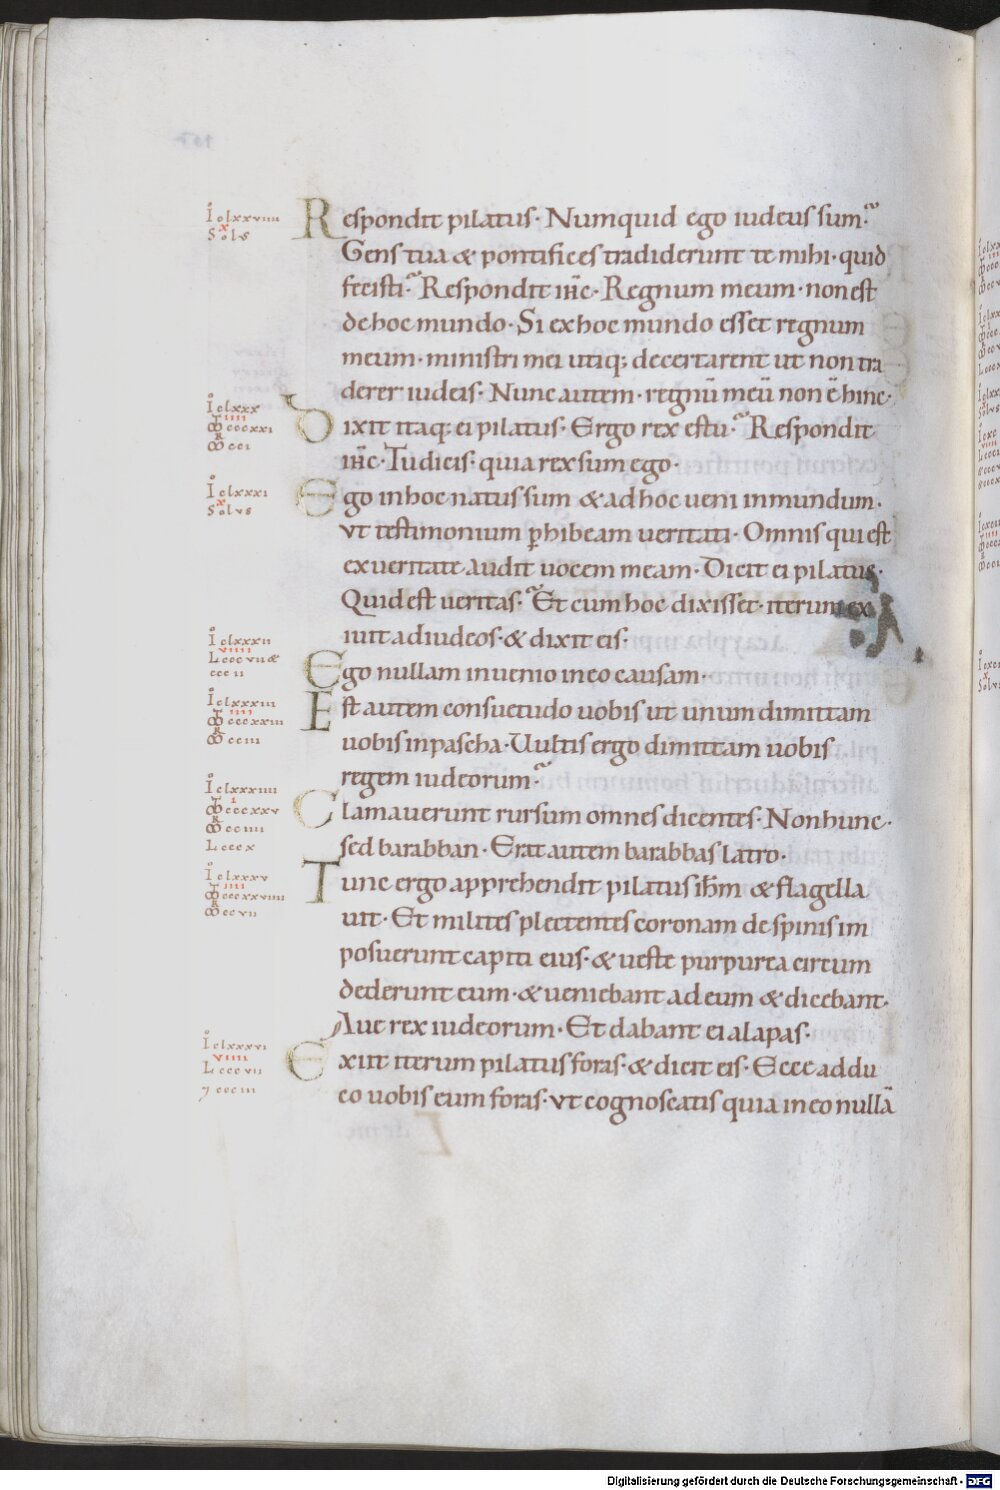 Respondit pilatus· Numquid ego iudeus sum·
Gens tua & pontifices tradiderunt te mihi· quid
fecisti· Respondit ih̄c· Regnum meum· non est
de hoc mundo· Si ex hoc mundo esset regnum
meum· ministri mei utiq; decertarent ut non tra
derer iudeis· Nunc autem· regnū meū non ē hinc·
Dixit itaq; ei pilatus· Ergo rex es tu· Respondit
ih̄c· Tu dicis· quia rex sum ego·
Ego in hoc natus sum & ad hoc ueni in mundum·
vt testimonium p̱hibeam ueritati· Omnis qui est
ex ueritate audit uocem meam· Dicit ei pilatus·
Quid est ueritas· Et cum hoc dixisset· iterum ex
iuit ad iudeos· & dixit eis·
Ego nullam inuenio in eo causam·
Est autem consuetudo uobis ut unum dimittam
uobis in pascha· Uultis ergo dimittam uobis
regem iudeorum·
Clamauerunt rursum omnes dicentes· Non hunc·
sed barabban· Erat autem barabbas latro·
Tunc ergo apprehendit pilatus ih̄m & flagella
uit· Et milites plectentes coronam de spinis im
posuerunt capiti eius· & ueste purpurea circum
dederunt eum· & ueniebant ad eum & dicebant·
Aue rex iudeorum· Et dabant ei alapas·
Exiit iterum pilatus foras· & dicit eis· Ecce addu
co uobis eum foras· vt cognoscatis quia in eo nullā
Iº clxxviiii
x
Solus
Iº clxxx
iiii
M cccxxi
R cci
Iº clxxxi
x
Solus
Iº clxxxii
viiii
L cccvii &
cccii
Iº clxxxiii
iiii
M cccxxiii
R cciii
Iº clxxxiiii
i
M cccxxv
R cciiii
L cccx
Iº clxxxv
iiii
M cccxxviiii
R ccvii
Iº clxxxvi
viiii
L cccvii
7 ccciii
Digitalisierung gefördert durch die Deutsche Forschungsgemeinschaft - DFG